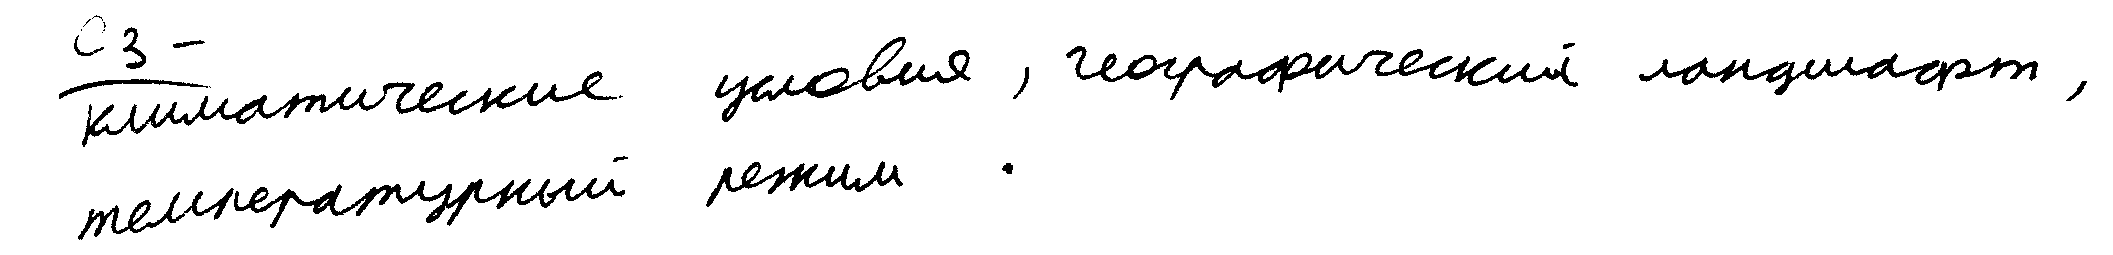 С3 -
климатические условия, географический ландшафт,
температурный режим.